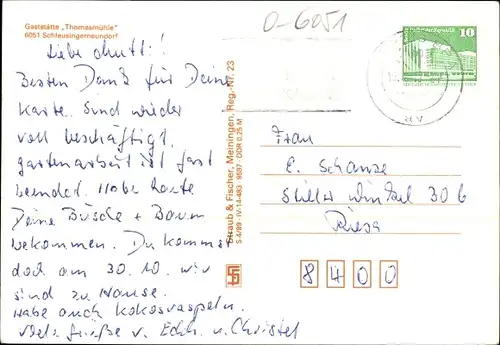 Gaststätte „Thomasmühle"
6051 Schleusingerneundorf
0-6051
10
Liebe Mutti!
Besten Dank für Deine
Karte. Sind wieder
voll beschäftigt.
Gartenarbeit ist fast
beendet. Habe heute
Deine Büsche + Baum
bekommen. Du kommst
doch am 30.10. wir
sind zu Hause.
Habe auch Kokosraspeln.
Viele Grüße v. Edth. u. Christel
Straub & Fischer, Meiningen, Reg.-Nr. 23
S 4/89 · IV-14-483 · 9597 · DDR 0,25 M
Frau
E. Schanze
Stiller Winkel 30 b
Riesa
8400